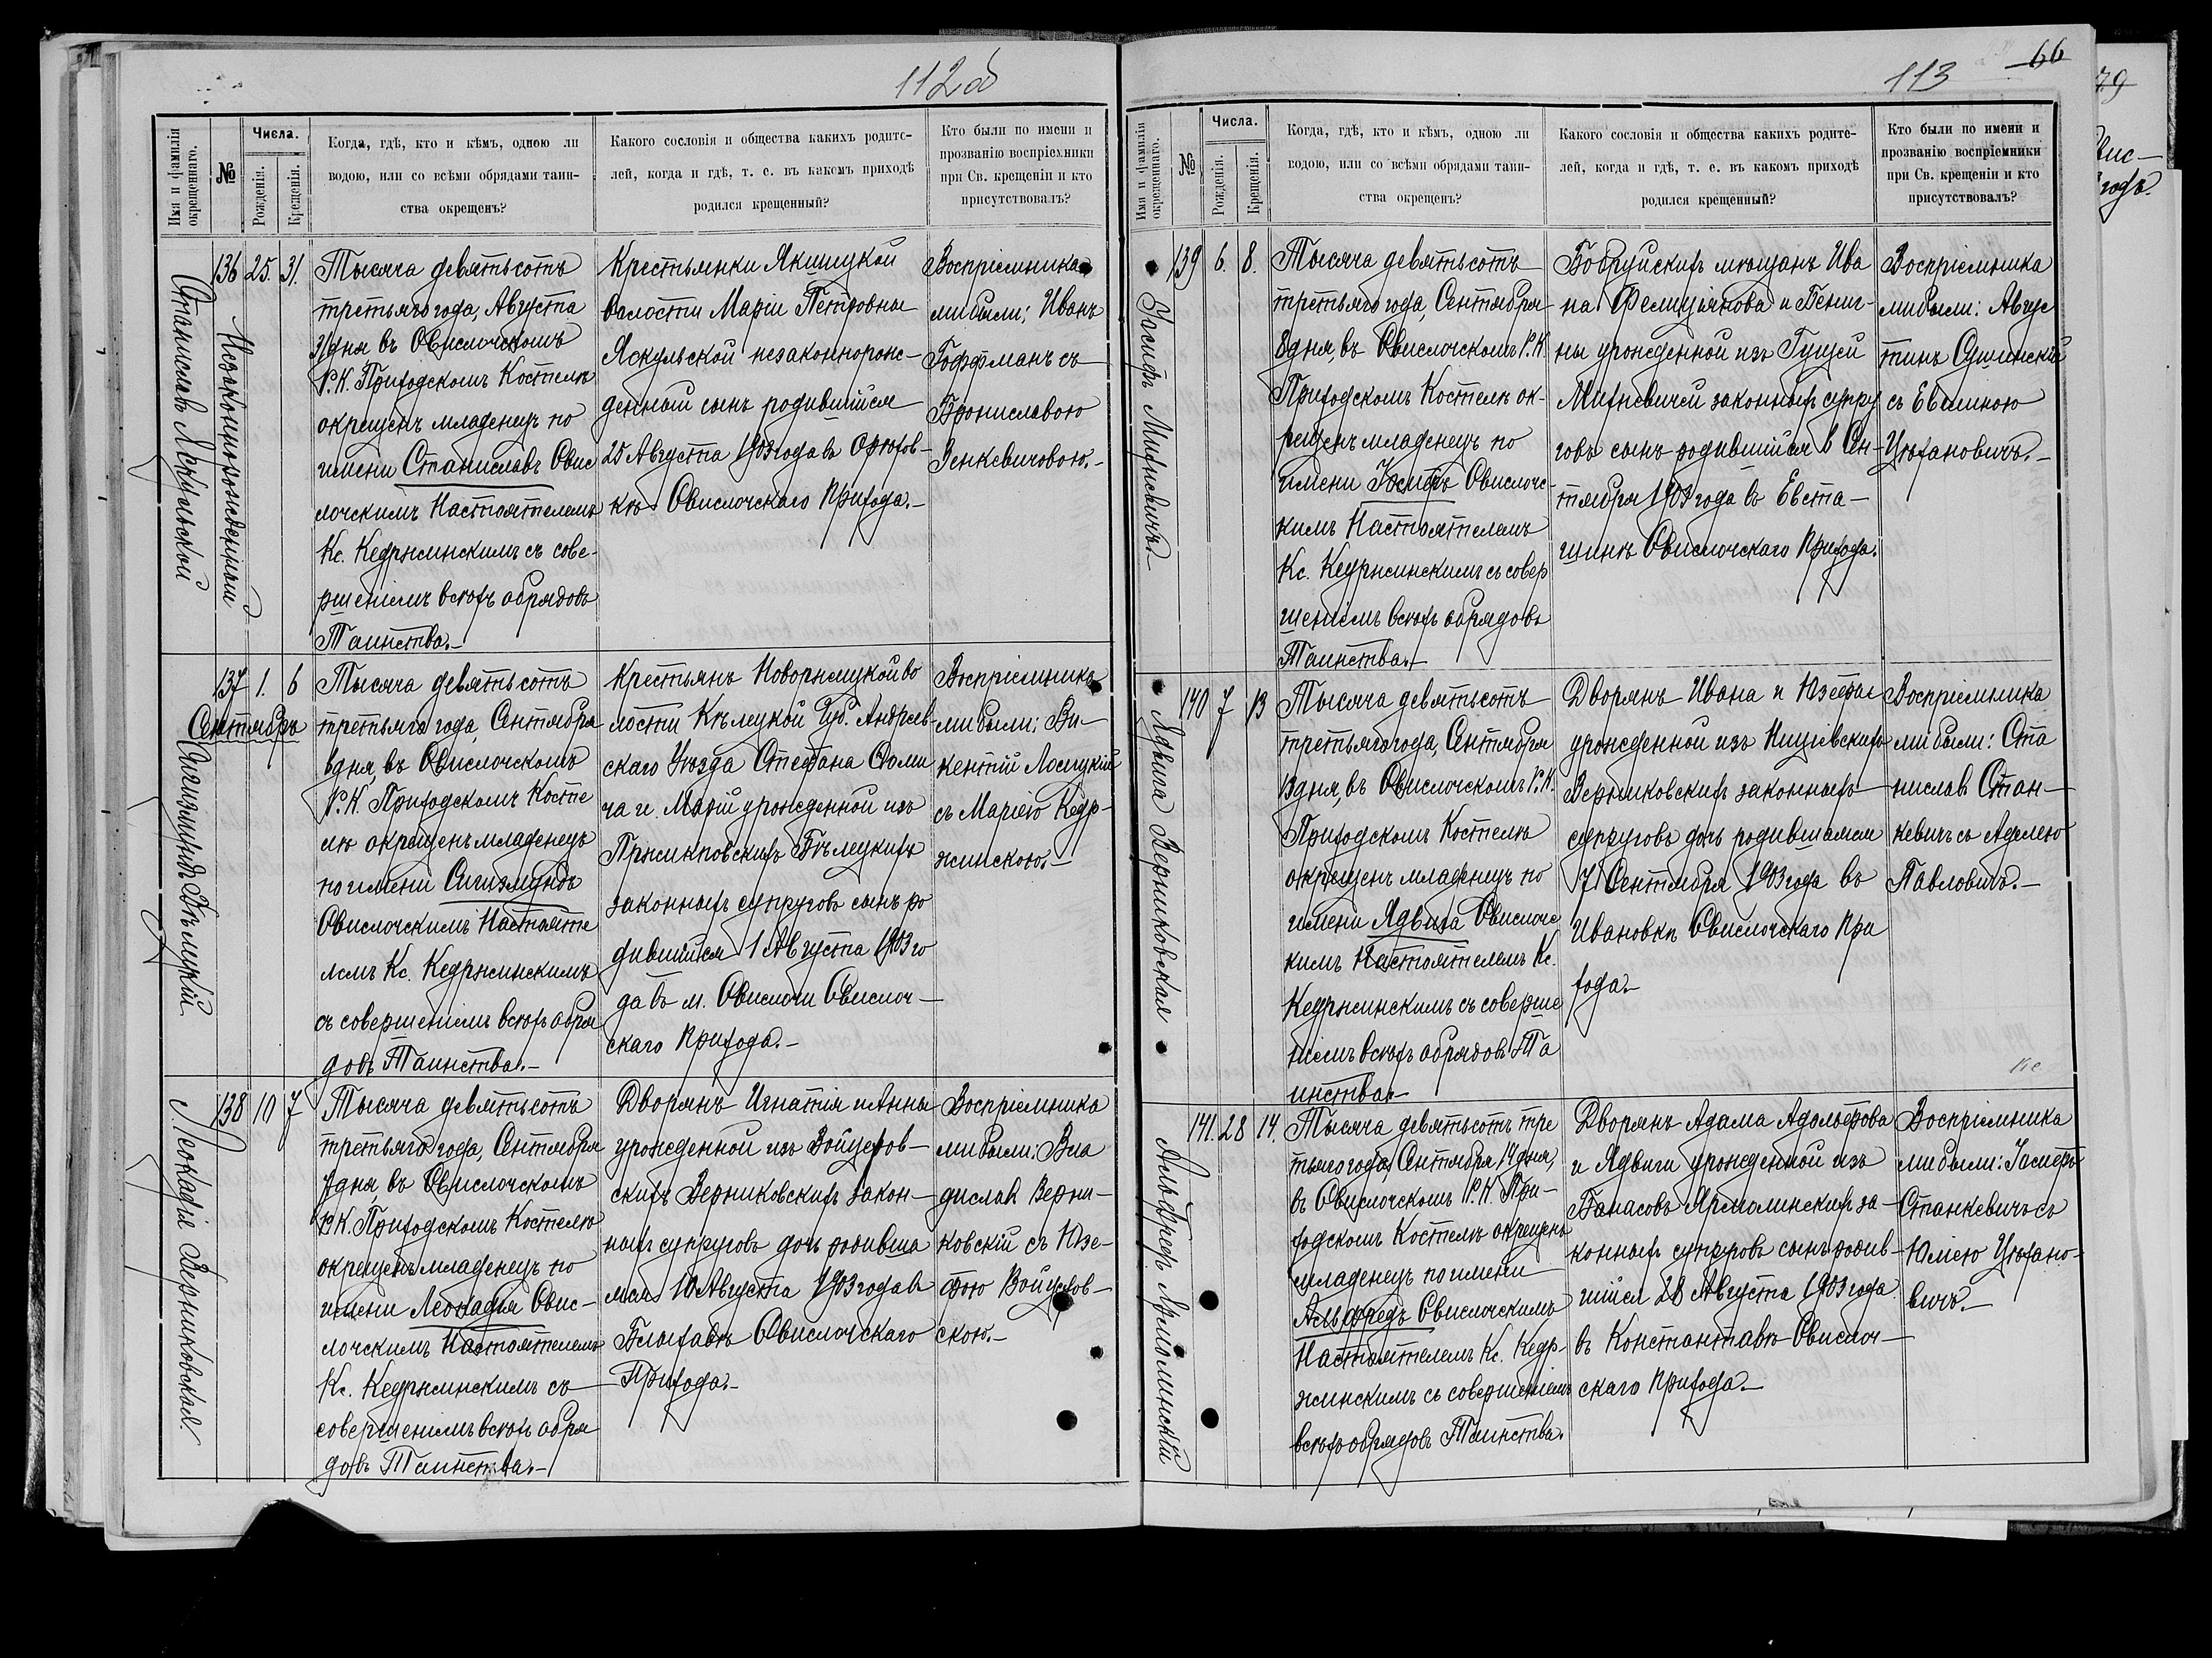 112об
Имя и фамилія окрещеннаго.
№
Числа.
Рожденія.
Крещенія.
Когда, гдѣ, кто и кѣмъ, одною ли
водою, или со всѣми обрядами таин-
ства окрещенъ?
Какого сословія и общества какихъ родите-
лей, когда и гдѣ, т. е. въ какомъ приходѣ
родился крещенный?
Кто были по имени и
прозванію воспріемники
при Св. крещеніи и кто
присутствовалъ?
Станиславъ Яскульской
Незаконнорожденный
136 25. 31.
Тысяча девятьсотъ
третьяго года, Августа
31 дня въ Свислочскомъ
Р. К. Приходскомъ Костелѣ
окрещенъ младенецъ по
имени Станиславъ Свис
лочскимъ Настоятелемъ
Кс. Кедржинскимъ съ сове-
ршеніемъ всѣхъ обрядовъ
Таинства.-
Крестьянки Якшицкой
волости Маріи Петровны
Яскульской незаконнорож-
денный сынъ родившійся
25 Августа 1903 года въ
кѣ Свислочскаго Прихода.-
Воспріемника
ми были: Иванъ
Гоффманъ съ
Брониславою
Зенкевичовою.-
137 1. 6
Сентябрь
Сигизмундъ Бѣлецкій
Тысяча девятьсотъ
третьяго года, Сентября
6 дня, въ Свислочскомъ
Р. К. Приходскомъ Косте
лѣ окрещенъ младенецъ
по имени Сигизмундъ
Свислочскимъ Настояте
лемъ Кс. Кедржинскимъ
съ совершеніемъ всѣхъ обря
довъ Таинства.-
Крестьянъ во
лости Кѣлецкой Губ. Андреев-
скаго Уѣзда Стефана
ча и Маріи урожденной изъ
Бѣлецкихъ
законныхъ супруговъ сынъ ро
дившійся 1 Августа 1903 го
да въ м. Свислочи Свислоч-
скаго Прихода.-
Воспріемника
ми были: Ви-
кентій Лосицкій
съ Маріею Кедр-
жинскою.-
Леокадія Верниковская.
138 10 7
Тысяча девятьсотъ
третьяго года, Сентября
7 дня, въ Свислочскомъ
Р. К. Приходскомъ Костелѣ
окрещенъ младенецъ по
имени Леокадія Свис-
лочскимъ Настоятелемъ
Кс. Кедржинскимъ съ
совершеніемъ всѣхъ обря
довъ Таинства.-
Дворянъ Игнатія и Анны
урожденной изъ Войцехов-
скихъ Верниковскихъ закон-
ныхъ супруговъ дочь родивша
яся 10 Августа 1903 года въ
Свислочскаго
Прихода.-
Воспріемника
ми были: Вла
диславъ Верни-
ковскій съ Юзе-
фою Войцехов-
скою.-
113
66
Имя и фамилія окрещеннаго.
№
Числа.
Рожденія.
Крещенія.
Когда, гдѣ, кто и кѣмъ, одною ли
водою, или со всѣми обрядами таин-
ства окрещенъ?
Какого сословія и общества какихъ родите-
лей, когда и гдѣ, т. е. въ какомъ приходѣ
родился крещенный?
Кто были по имени и
прозванію воспріемники
при Св. крещеніи и кто
присутствовалъ?
Іосифъ Михневичъ.
139 6. 8.
Тысяча девятьсотъ
третьяго года, Сентября
8 дня, въ Свислочскомъ Р. К.
Приходскомъ Костелѣ ок-
рещенъ младенецъ по
имени Іосифъ Свислочс-
кимъ Настоятелемъ
Кс. Кедржинскимъ съ совер
шеніемъ всѣхъ обрядовъ
Таинства.-
Бобруйскихъ мѣщанъ Ива
на Фелиціянова и Бениг-
ны урожденной изъ Гущей
Михневичей законныхъ супру
говъ сынъ родившійся 6 Сен-
тября 1903 года въ Евста-
Свислочскаго Прихода.
Воспріемника
ми были: Авгус
тинъ
съ Евелиною
Цѣхановичъ.-
Ядвига Верниковская
140 7 13
Тысяча девятьсотъ
третьяго года, Сентября
13 дня, въ Свислочскомъ Р. К.
Приходскомъ Костелѣ
окрещенъ младенецъ по
имени Ядвига Свислочс
кимъ Настоятелемъ Кс.
Кедржинскимъ съ соверше
ніемъ всѣхъ обрядовъ Та
инства.-
Дворянъ Ивана и Юзефы
урожденной изъ
Верниковскихъ законныхъ
супруговъ дочь родившаяся
7 Сентября 1903 года въ
Ивановкѣ Свислочскаго При
хода.-
Воспріемника
ми были: Ста
ниславъ Стан-
кевичъ съ Аделею
Павловичъ.-
Альфредъ Ярмолинскій
141. 28 14.
Тысяча девятьсотъ тре
тьяго года, Сентября 14 дня,
въ Свислочскомъ Р. К. При-
ходскомъ Костелѣ окрещенъ
младенецъ по имени
Альфредъ Свислочскимъ
Настоятелемъ Кс. Кедр-
жинскимъ съ совершеніемъ
всѣхъ обрядовъ Таинства.
Дворянъ Адама Адольфова
и Ядвиги урожденной изъ
Банасовъ Ярмолинскихъ за-
конныхъ супруговъ сынъ родив-
шійся 28 Августа 1903 года
въ Константавѣ Свислоч-
скаго Прихода.-
Воспріемника
ми были: Іосифъ
Станкевичъ съ
Юліею Цѣхано-
вичъ.-
79
года.